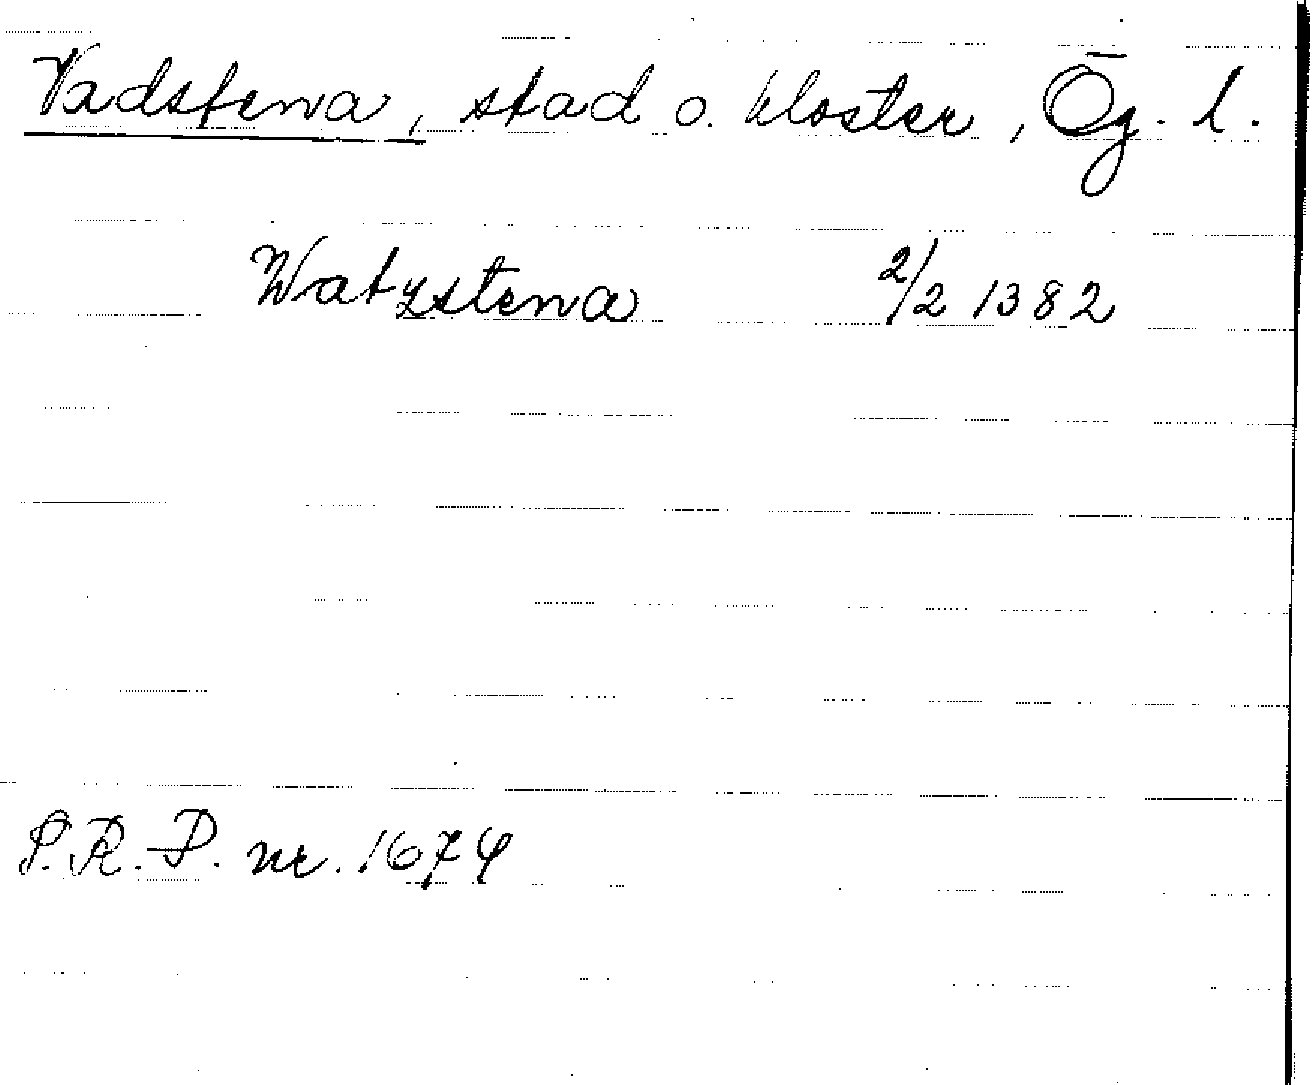 Vadstena, stad o. kloster, Ög. l.
Watzstena 2/2 1382
S.R.P. nr. 1674